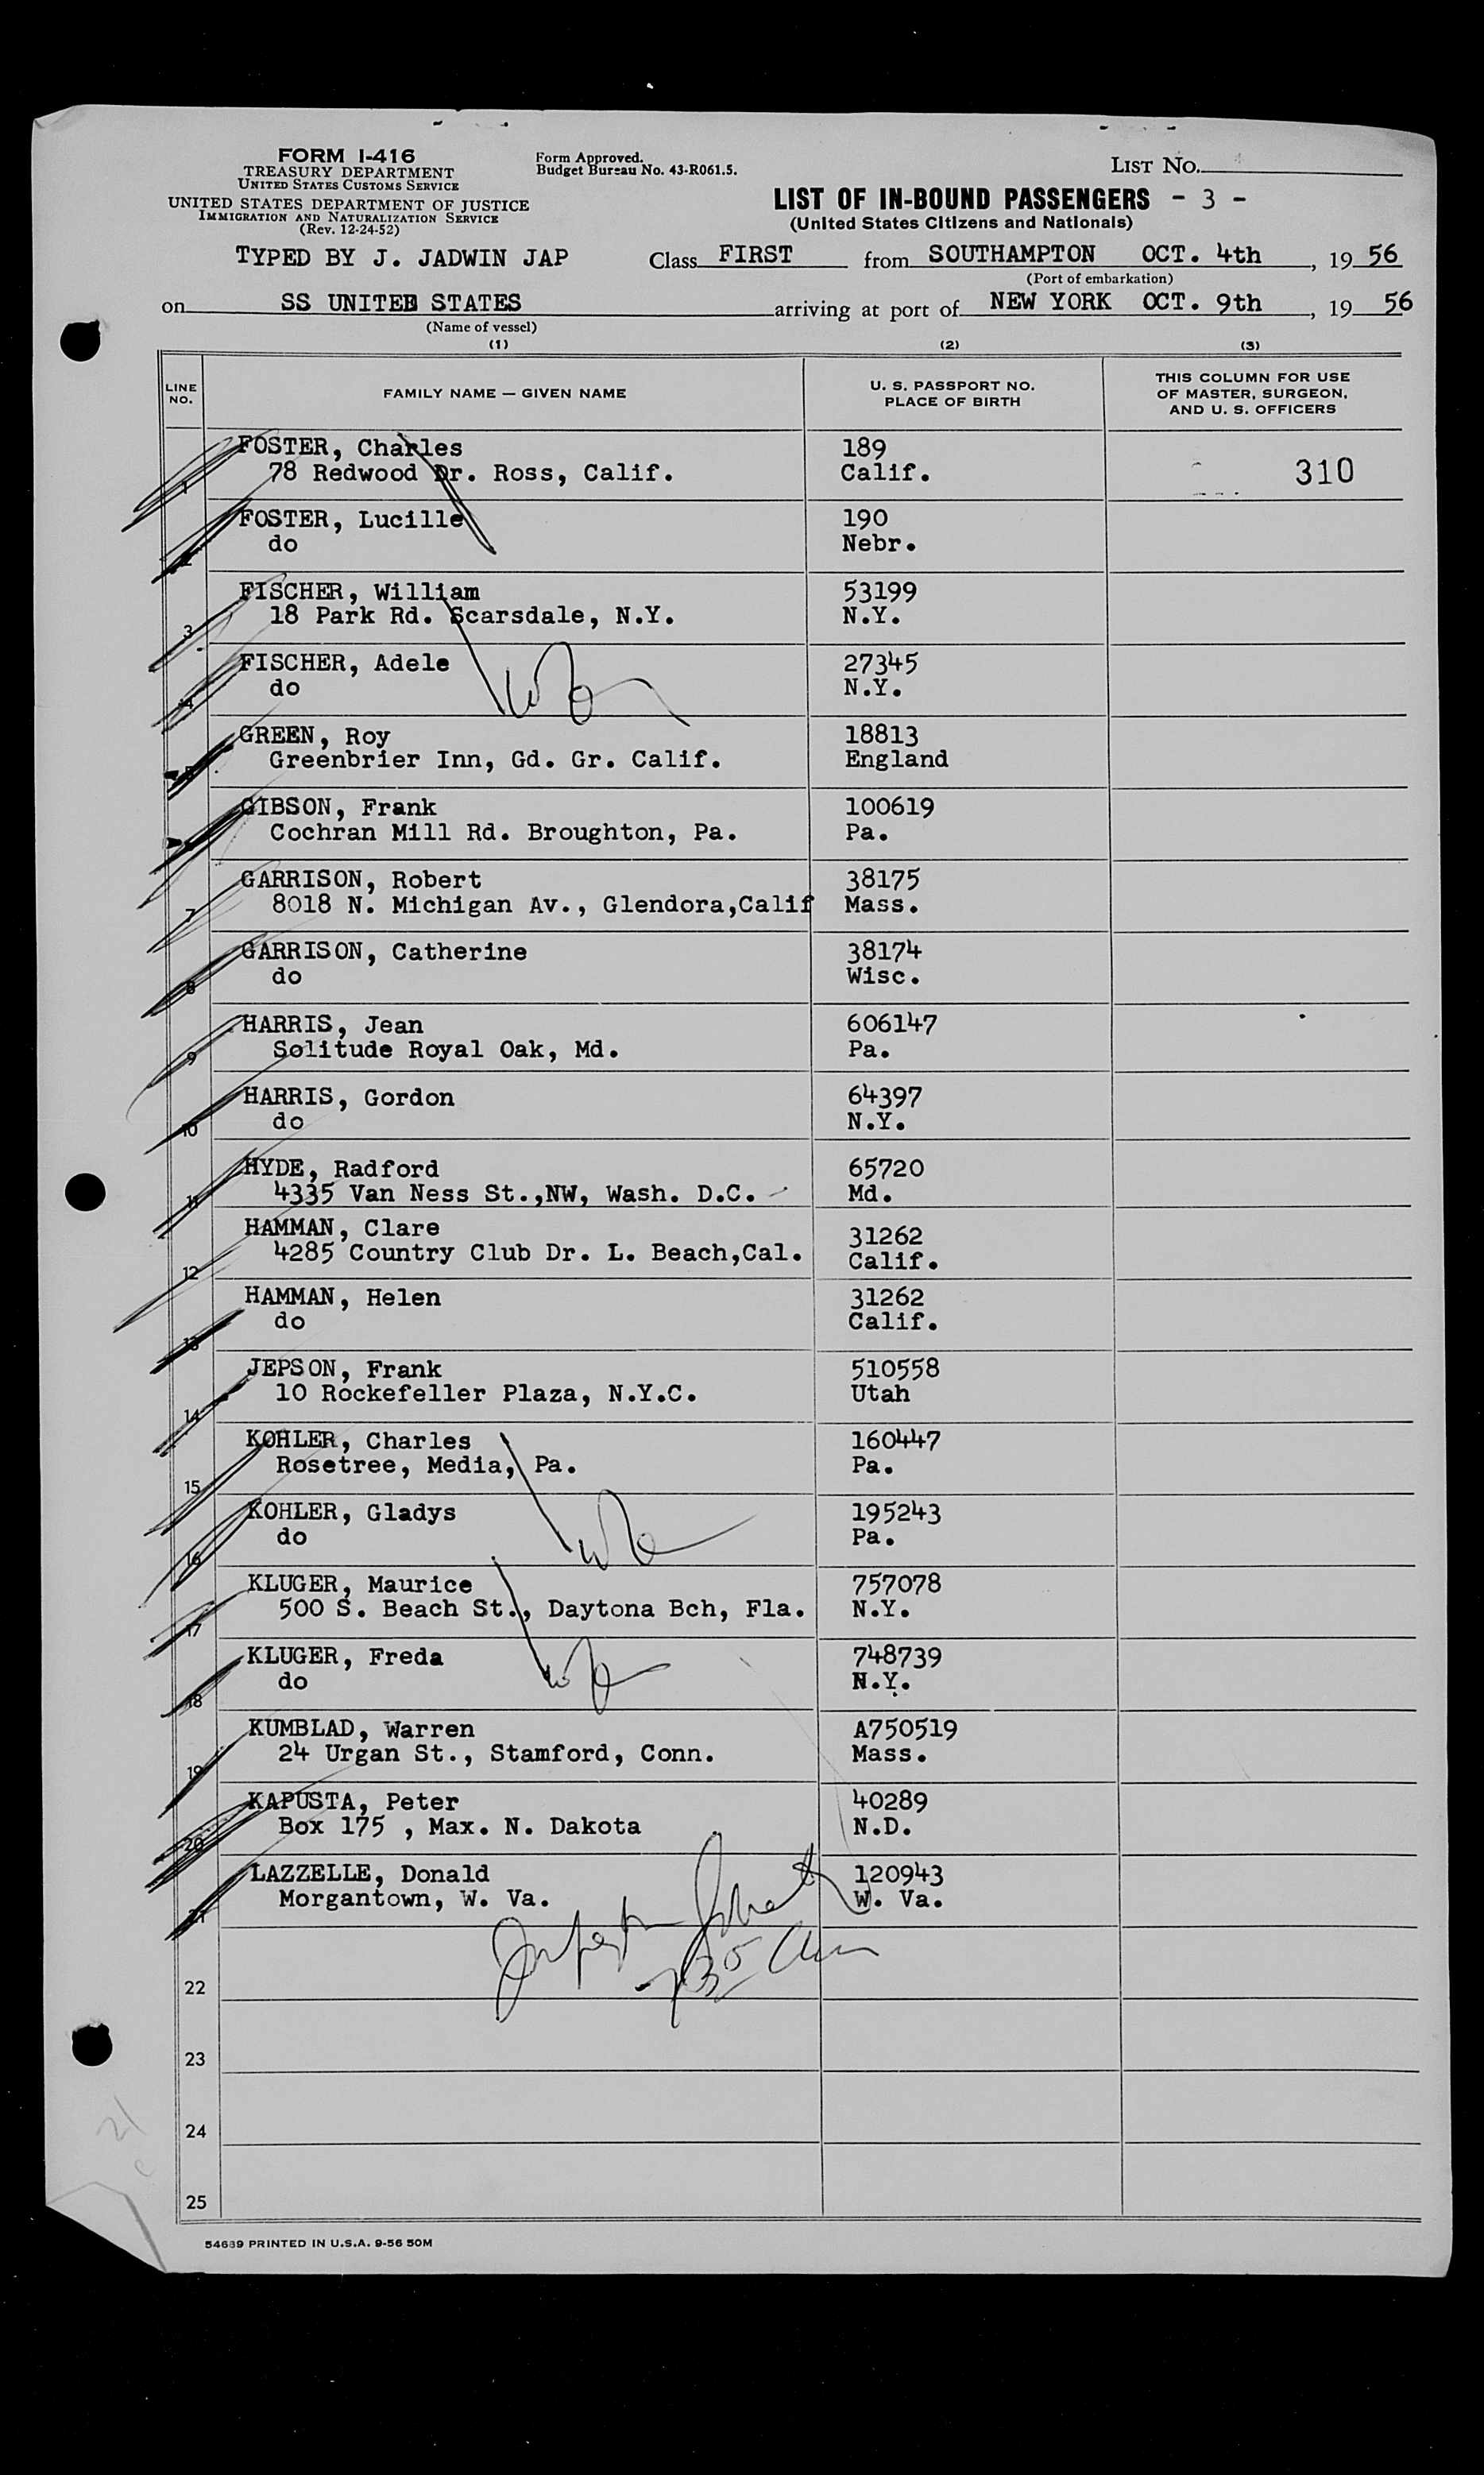 FORM I-416
TREASURY DEPARTMENT
UNITED STATES CUSTOMS SERVICE
UNITED STATES DEPARTMENT OF JUSTICE
IMMIGRATION AND NATURALIZATION SERVICE
(Rev. 12-24-52)
Form Approved.
Budget Bureau No. 43-R061.5.
LIST NO.
LIST OF IN-BOUND PASSENGERS - 3 -
(United States Citizens and Nationals)
TYPED BY J. JADWIN JAP Class FIRST from SOUTHAMPTON OCT. 4th, 19 56
(Port of embarkation)
on SS UNITED STATES arriving at port of NEW YORK OCT. 9th, 19 56
(Name of vessel)
(1) (2) (3)
LINE NO. FAMILY NAME — GIVEN NAME U. S. PASSPORT NO. PLACE OF BIRTH THIS COLUMN FOR USE OF MASTER, SURGEON, AND U. S. OFFICERS
FOSTER, Charles 189
1 78 Redwood Dr. Ross, Calif. Calif. 310
FOSTER, Lucille 190
2 do Nebr.
FISCHER, William 53199
3 18 Park Rd. Scarsdale, N.Y. N.Y.
FISCHER, Adele 27345
4 do N.Y.
GREEN, Roy 18813
5 Greenbrier Inn, Gd. Gr. Calif. England
GIBSON, Frank 100619
Cochran Mill Rd. Broughton, Pa. Pa.
GARRISON, Robert 38175
7 8018 N. Michigan Av., Glendora,Calif Mass.
GARRISON, Catherine 38174
8 do Wisc.
HARRIS, Jean 606147
9 Solitude Royal Oak, Md. Pa.
HARRIS, Gordon 64397
10 do N.Y.
HYDE, Radford 65720
11 4335 Van Ness St.,NW, Wash. D.C. Md.
HAMMAN, Clare 31262
12 4285 Country Club Dr. L. Beach,Cal. Calif.
HAMMAN, Helen 31262
13 do Calif.
JEPSON, Frank 510558
14 10 Rockefeller Plaza, N.Y.C. Utah
KOHLER, Charles 160447
15 Rosetree, Media, Pa. Pa.
KOHLER, Gladys 195243
16 do Pa.
KLUGER, Maurice 757078
17 500 S. Beach St., Daytona Bch, Fla. N.Y.
KLUGER, Freda 748739
18 do N.Y.
KUMBLAD, Warren A750519
19 24 Urgan St., Stamford, Conn. Mass.
KAPUSTA, Peter 40289
20 Box 175 , Max. N. Dakota N.D.
LAZZELLE, Donald 120943
21 Morgantown, W. Va. W. Va.
22
23
24
25
21
54639 PRINTED IN U.S.A. 9-56 50M